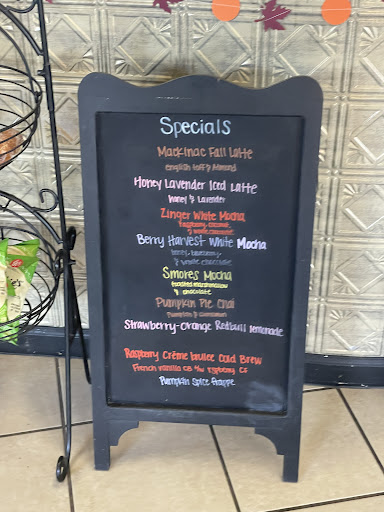 Specials
Mackinac Fall Latte
english toffy Almond
Honey Lavender Iced Latte
Honey & Lavender
Zinger White Mocha
Raspberry, coconut
& white chocolate
Berry Harvest White Mocha
& white chocolate
Smores Mocha
toasted marshmallow
& chocolate
Pumpkin Pie Chai
Pumpkin & cinnamon
Strawberry-Orange Redbull lemonade
Raspberry Crème brulee Cold Brew
French vanilla CB w/ raspberry CF
Pumpkin Spice frappe